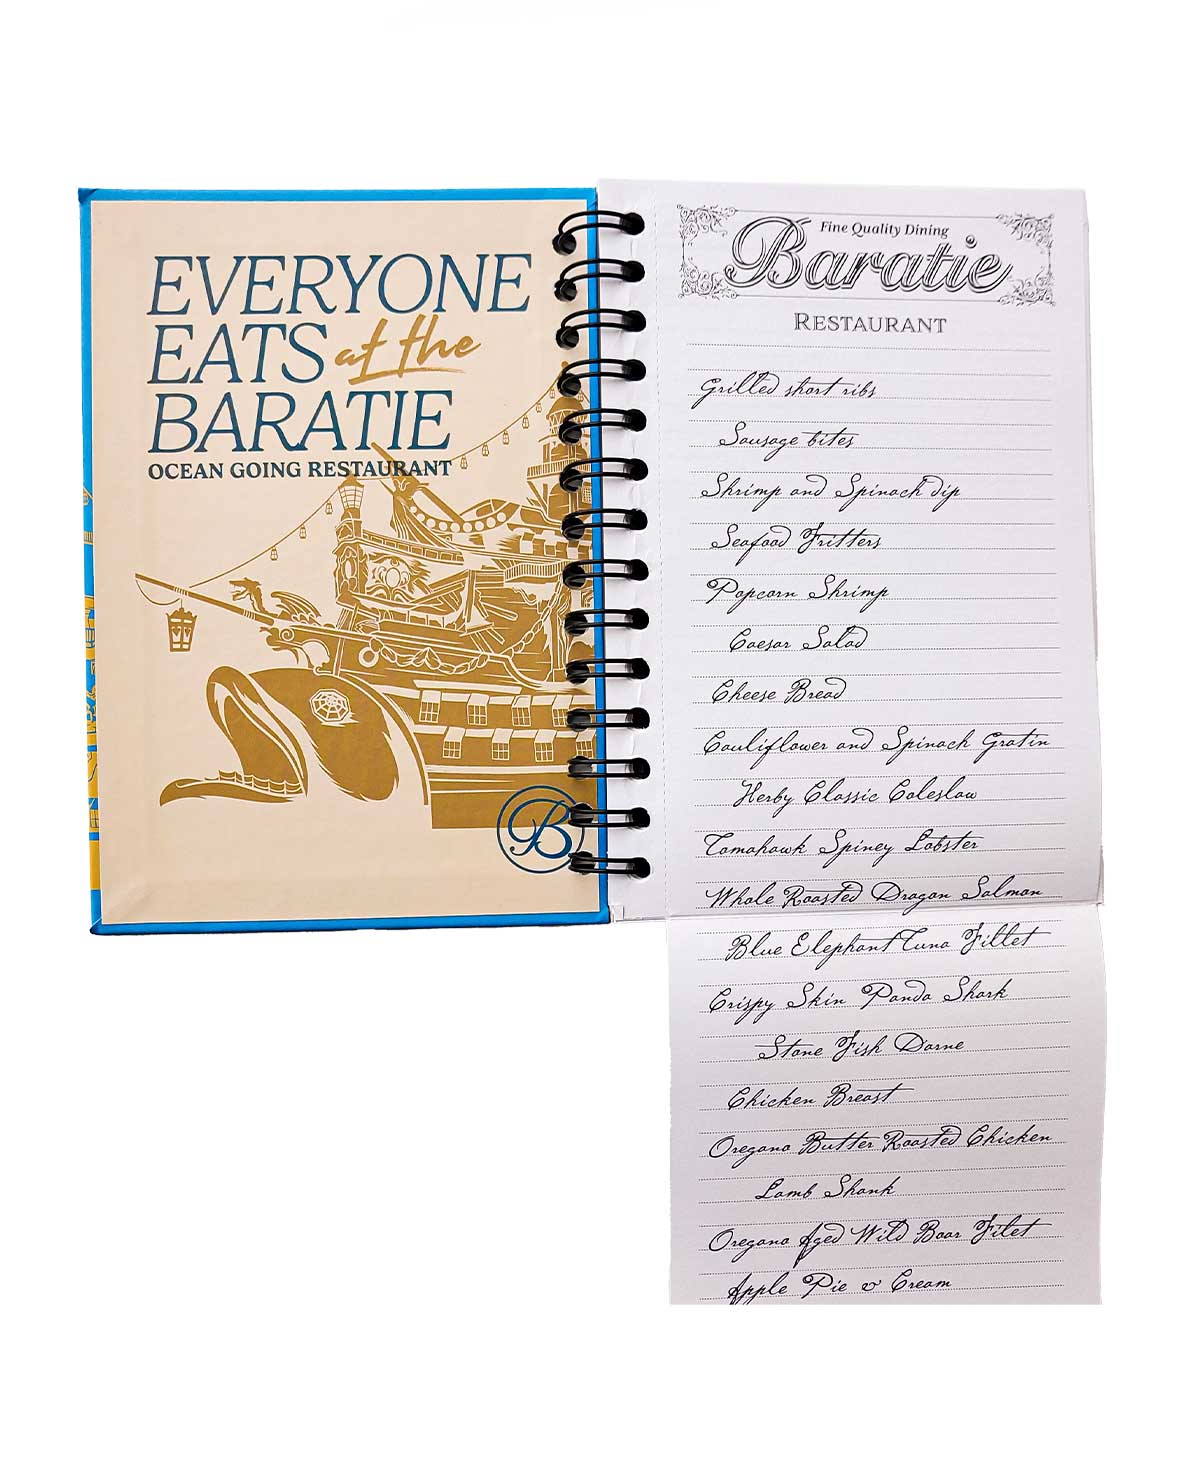 EVERYONE
EATS at the
BARATIE
OCEAN GOING RESTAURANT
B
Fine Quality Dining
Baratie
RESTAURANT
Grilled short ribs
Sausage bites
Shrimp and Spinach dip
Seafood Fritters
Popcorn Shrimp
Caesar Salad
Cheese Bread
Cauliflower and Spinach Gratin
Herby Classic Coleslaw
Tomahawk Spiney Lobster
Whole Roasted Dragon Salmon
Blue Elephant Tuna Fillet
Crispy Skin Panda Shark
Stone Fish Darne
Chicken Breast
Oregano Butter Roasted Chicken
Lamb Shank
Oregano Aged Wild Boar Filet
Apple Pie & Cream